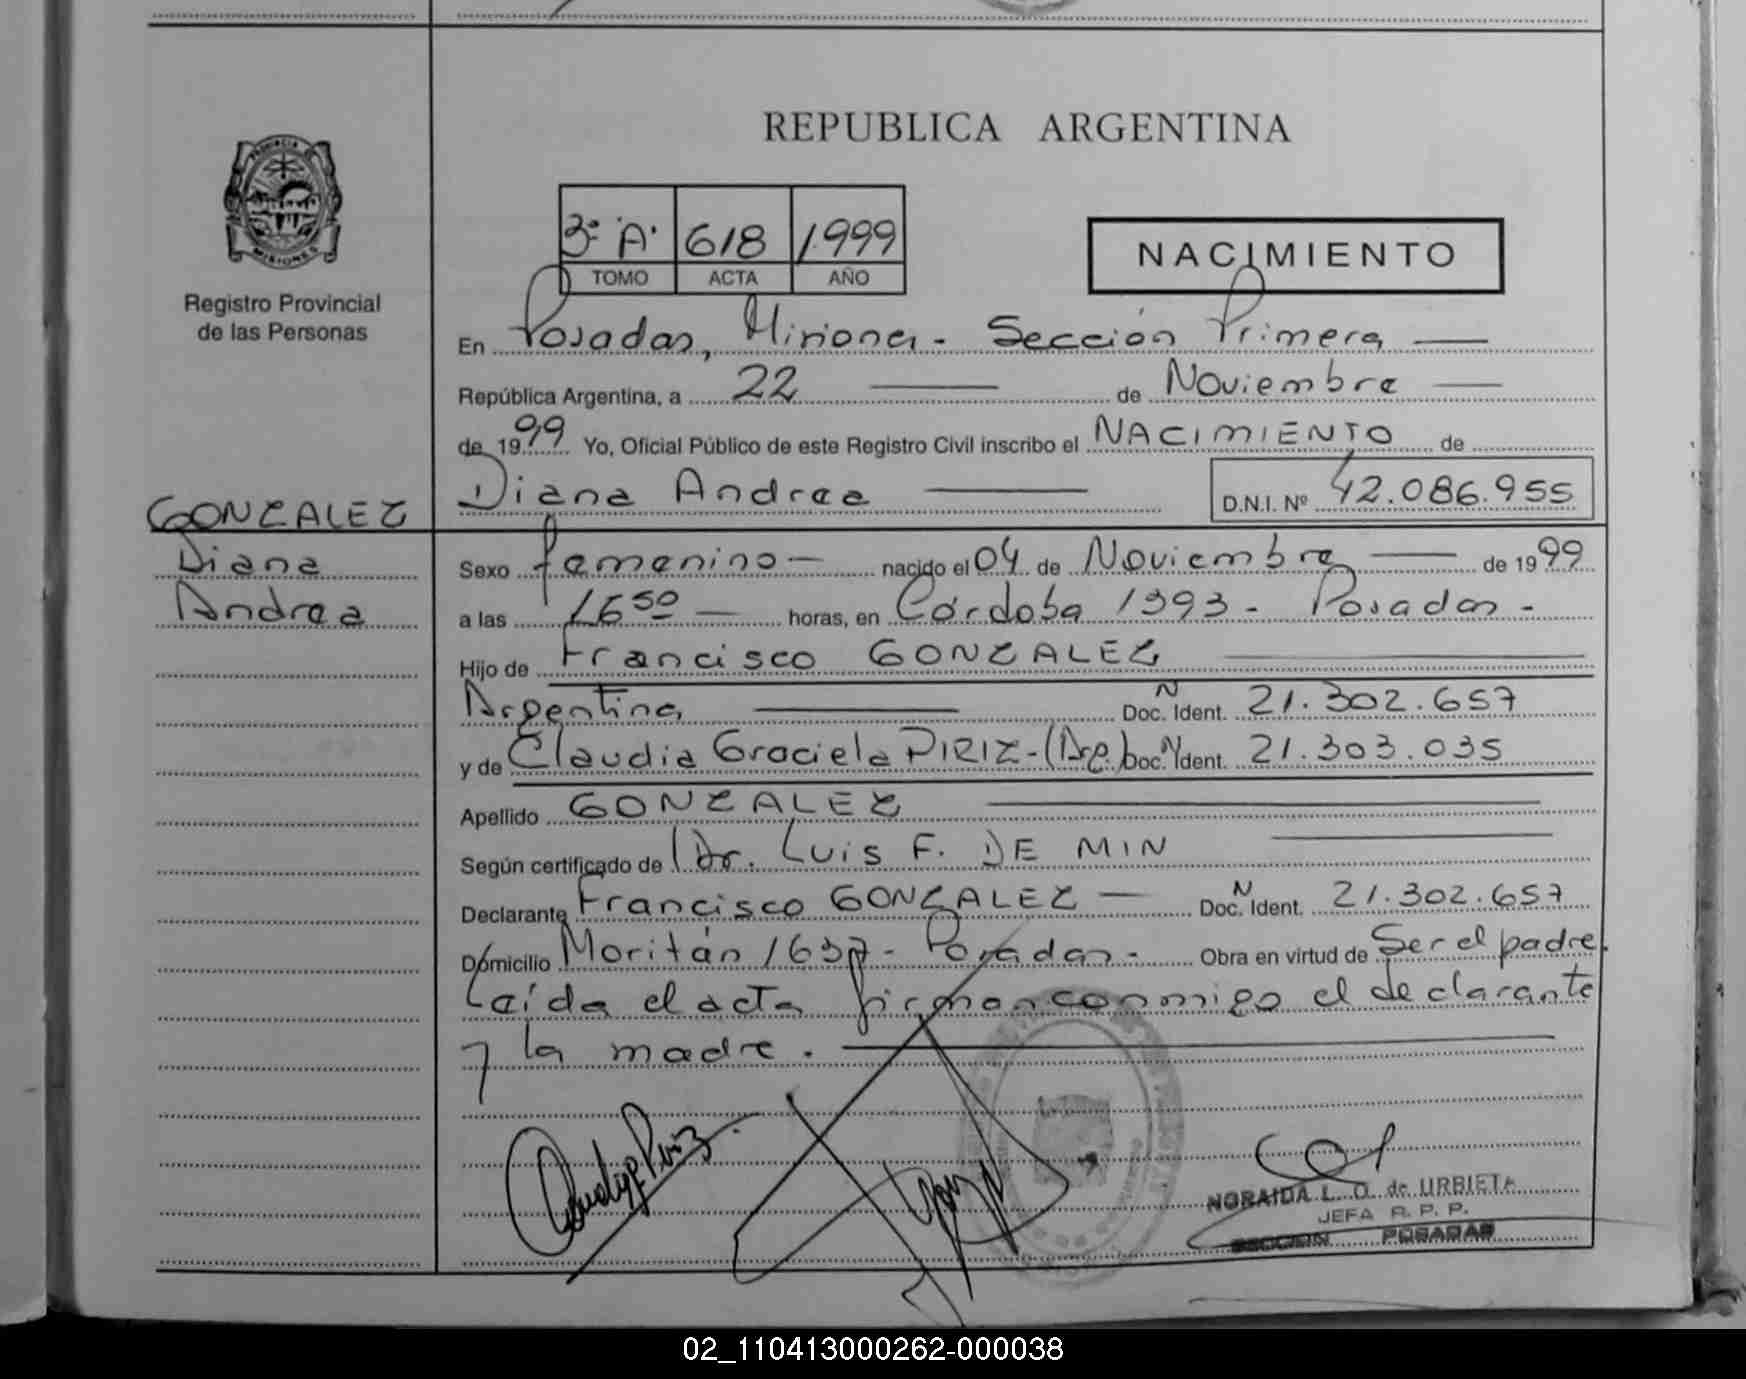 REPUBLICA ARGENTINA
PROVINCIA DE
MISIONES
Registro Provincial
de las Personas
3º "A" 618 1999
TOMO ACTA AÑO
NACIMIENTO
En Posadas, Misiones - Sección Primera
República Argentina, a 22 de Noviembre
de 1999 Yo, Oficial Público de este Registro Civil inscribo el NACIMIENTO de
Diana Andrea D.N.I. Nº 42.086.955
GONZALEZ
Diana
Andrea
Sexo femenino - nacido el 04 de Noviembre de 1999
a las 16 50 - horas, en Córdoba 1393 - Posadas -
Hijo de Francisco GONZALEZ
Argentina Doc. N Ident. 21.302.657
y de Claudia Graciela PIRIZ - (Arg.) Doc. N Ident. 21.303.035
Apellido GONZALEZ
Según certificado de Dr. Luis F. DE MIN
Declarante Francisco GONZALEZ - Doc. N Ident. 21.302.657
Domicilio Moritán 1637 - Posadas - Obra en virtud de Ser el padre.
Leída el acta firman conmigo el declarante
y la madre.
Claudia Piriz
NORAIDA L. O. de URBIETA
JEFA R. P. P.
SECCION POSADAS
02_110413000262-000038